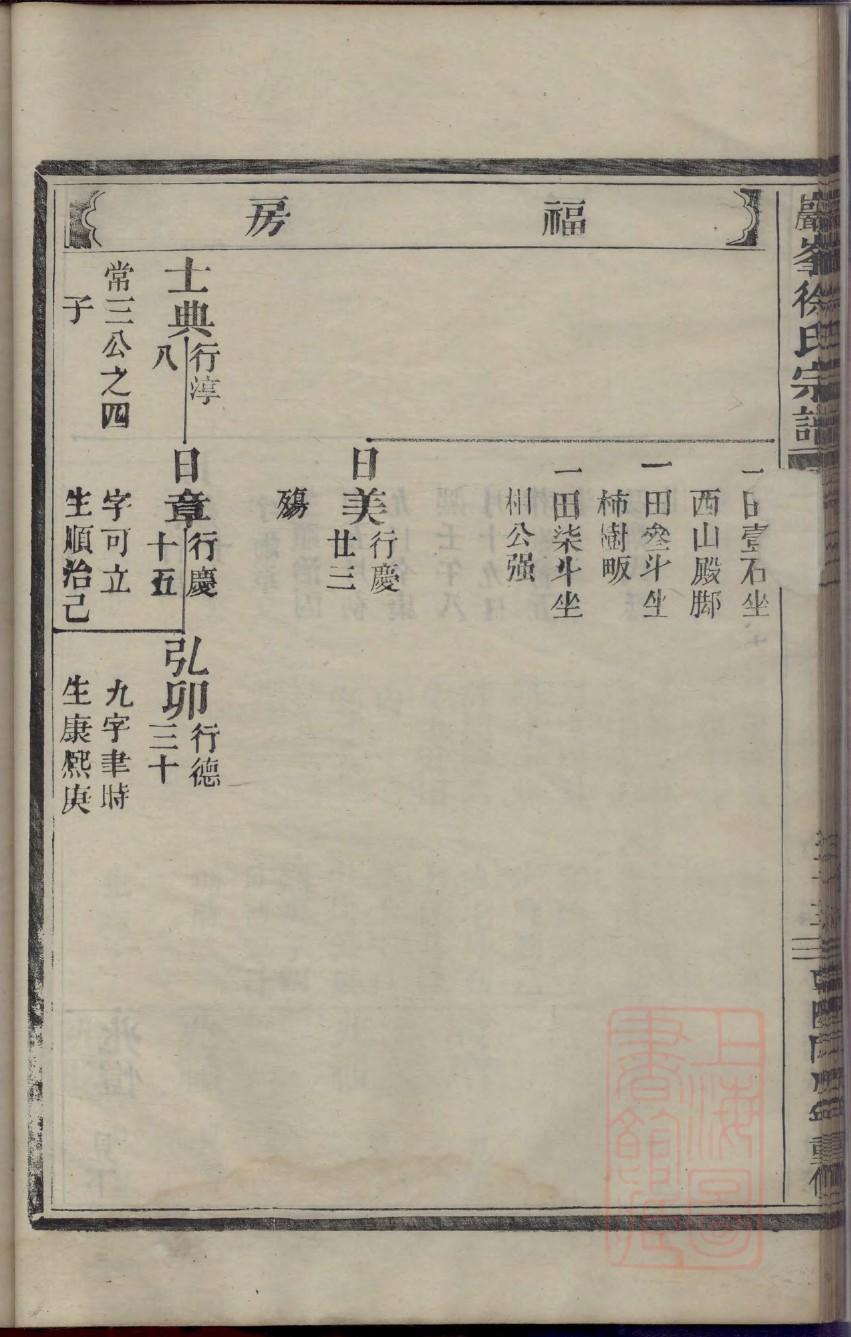 巖峯徐氏宗譜
福房
一田壹石坐
西山殿脚
一田叁斗坐
柿樹畈
一田柒斗坐
相公强
日美行慶
廿三
殤
士典行淳
八
常三公之四
子
日章行慶
十五
字可立
生順治己
弘卯行德
三十
九字聿時
生康熙庚
上海圖書館藏